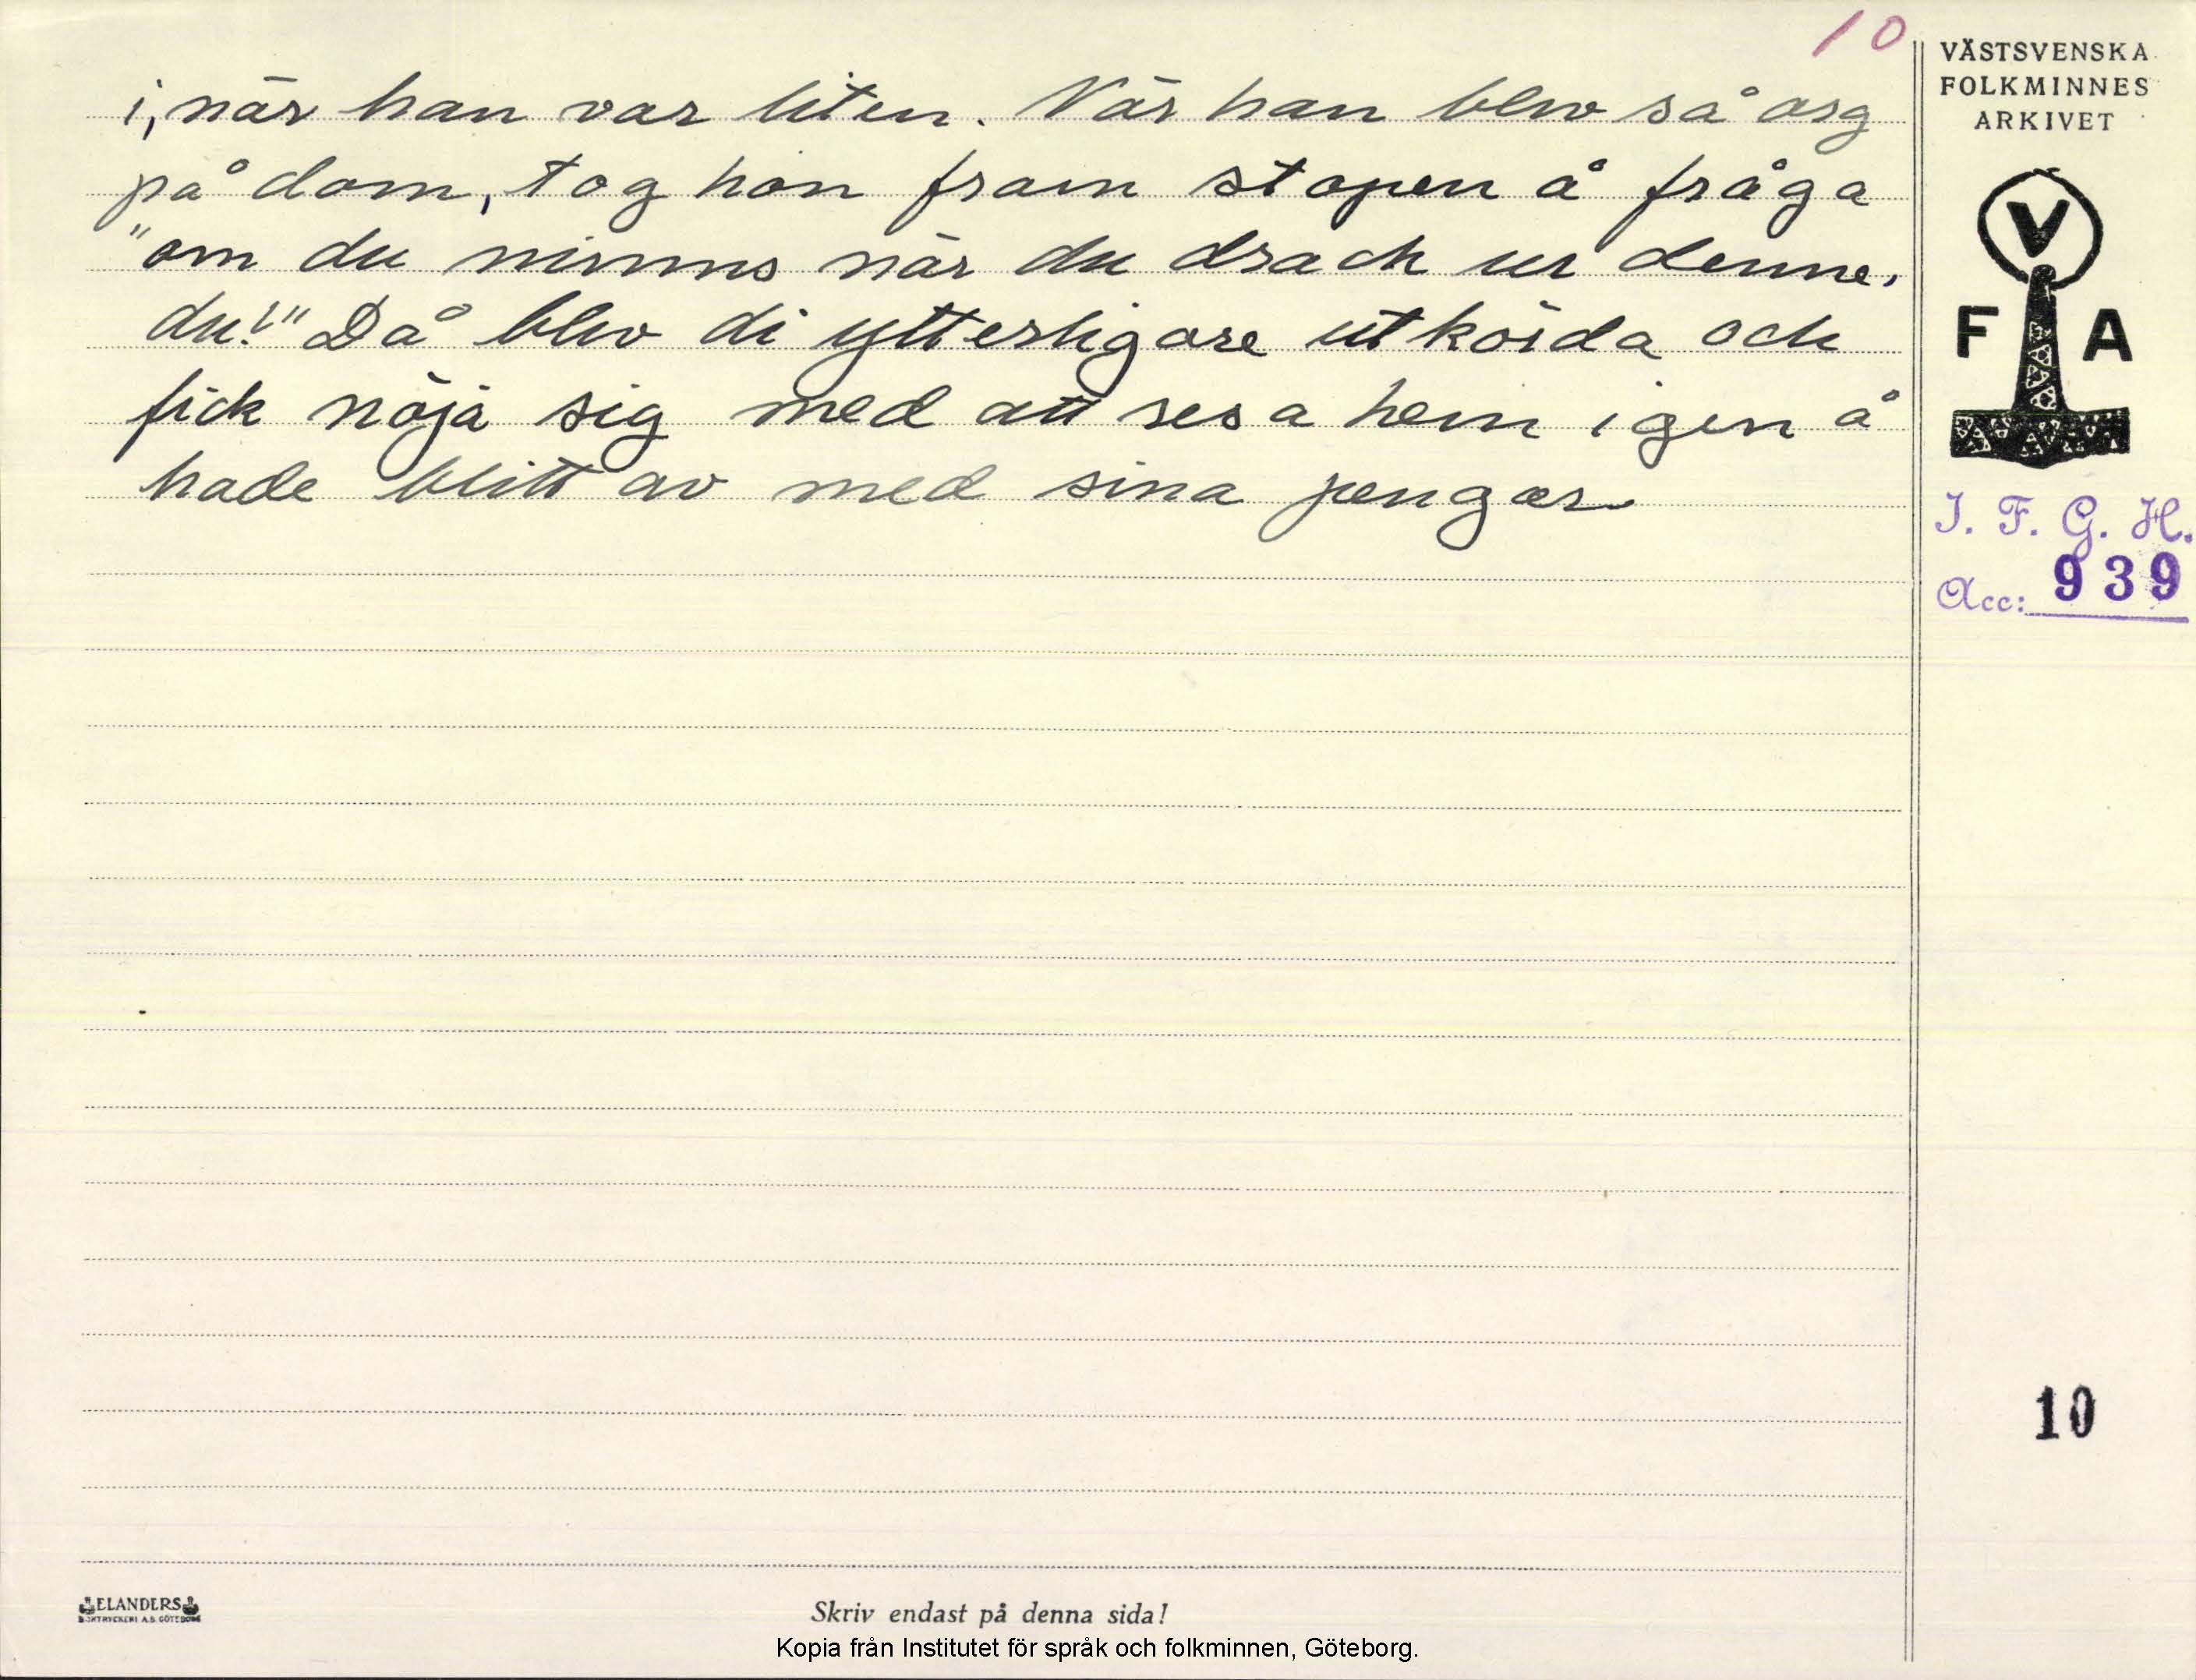 10
i, när han var liten. När han blev så arg
på dom, tog hon fram stopen å fråga
"om du minns när du drack ur denne,
du!" Då blev di ytterligare utkörda och
fick nöja sig med att resa hem igen å
hade blitt av med sina pengar
VÄSTSVENSKA
FOLKMINNES
ARKIVET
V
F A
I. F. G. H.
Acc: 939
10
ELANDERS
BOKTRYCKERI A.B. GÖTEBORG
Skriv endast på denna sida!
Kopia från Institutet för språk och folkminnen, Göteborg.